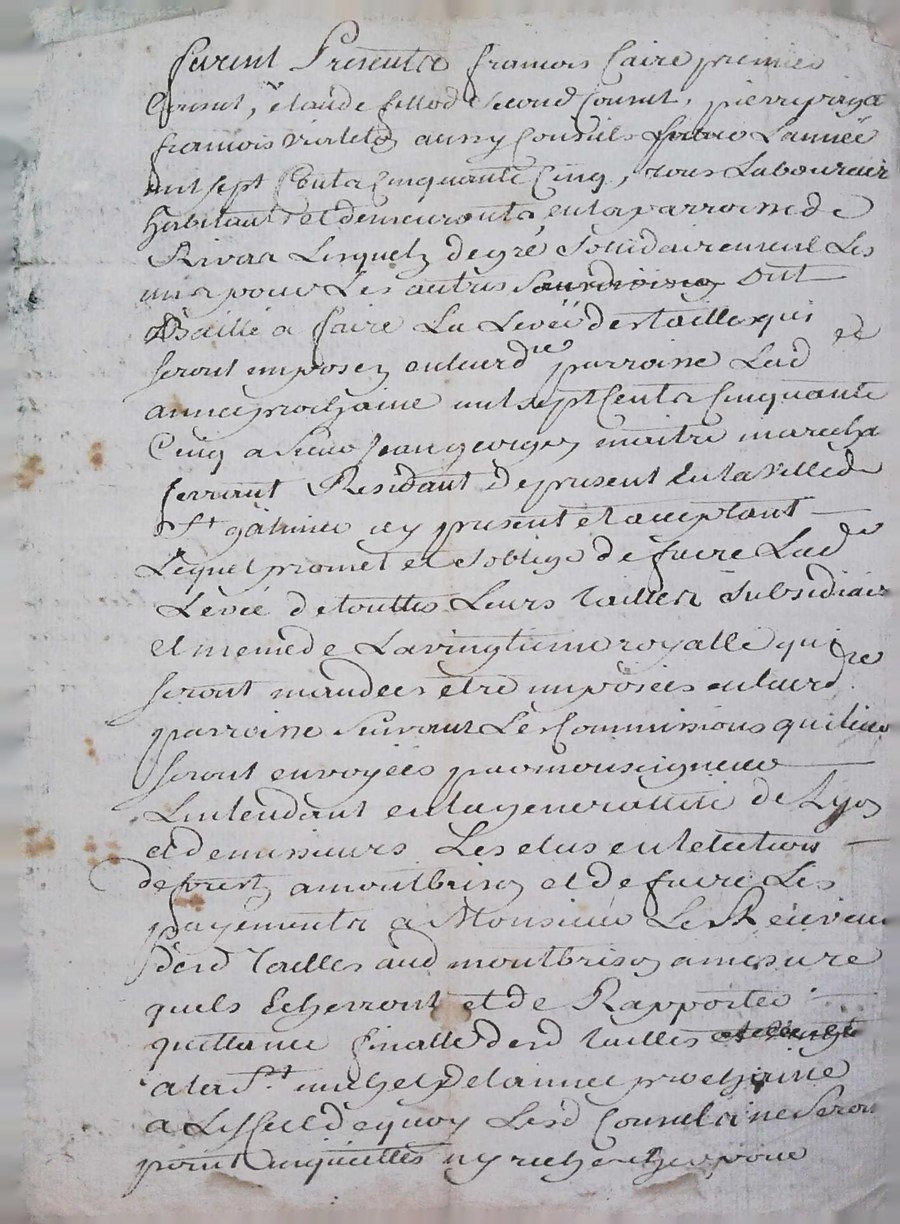 furent Presents francois Caire premier
Consul, Claude fillod second Consul, pierre
francois violet aussy Consuls pour Lannée
mil sept Cents Cinquante Cinq, tous Laboureurs
habitants et demeurants en la parroisse de
Rivas Lesquels de gré Sollidairement Les
uns pour Les autres ont
Baillé a faire La Levée des tailles qui
seront imposez en leur d.te parroisse Lad.te
année prochaine mil sept Cents Cinquante
Cinq a Sieur Jean georges maitre marechal
ferrant Residant de present En la ville de
St galmier icy present et acceptant
Lequel promet et soblige de faire Lad.te
Levée de touttes Leurs tailles Subsidiaires
et meme de La vingtieme royalle qui
seront mandees et re imposées en leurd.te
parroisse Suivant Les Commissions qui leur
Seront envoyées par monseigneur
Lintendant en la generallité de Lyon
et de messieurs Les elus en lelection
de forest a montbrison et de faire Les
payements a Monsieur Le Receveur
desd tailles aud montbrison a mesure
quels Echerront et de Rapporter
quittance finalle desd tailles
a la St michel de lannée prochaine
a Leffet de quoy Lesd Consuls ne seront
point inquiettés ny recherchés pour